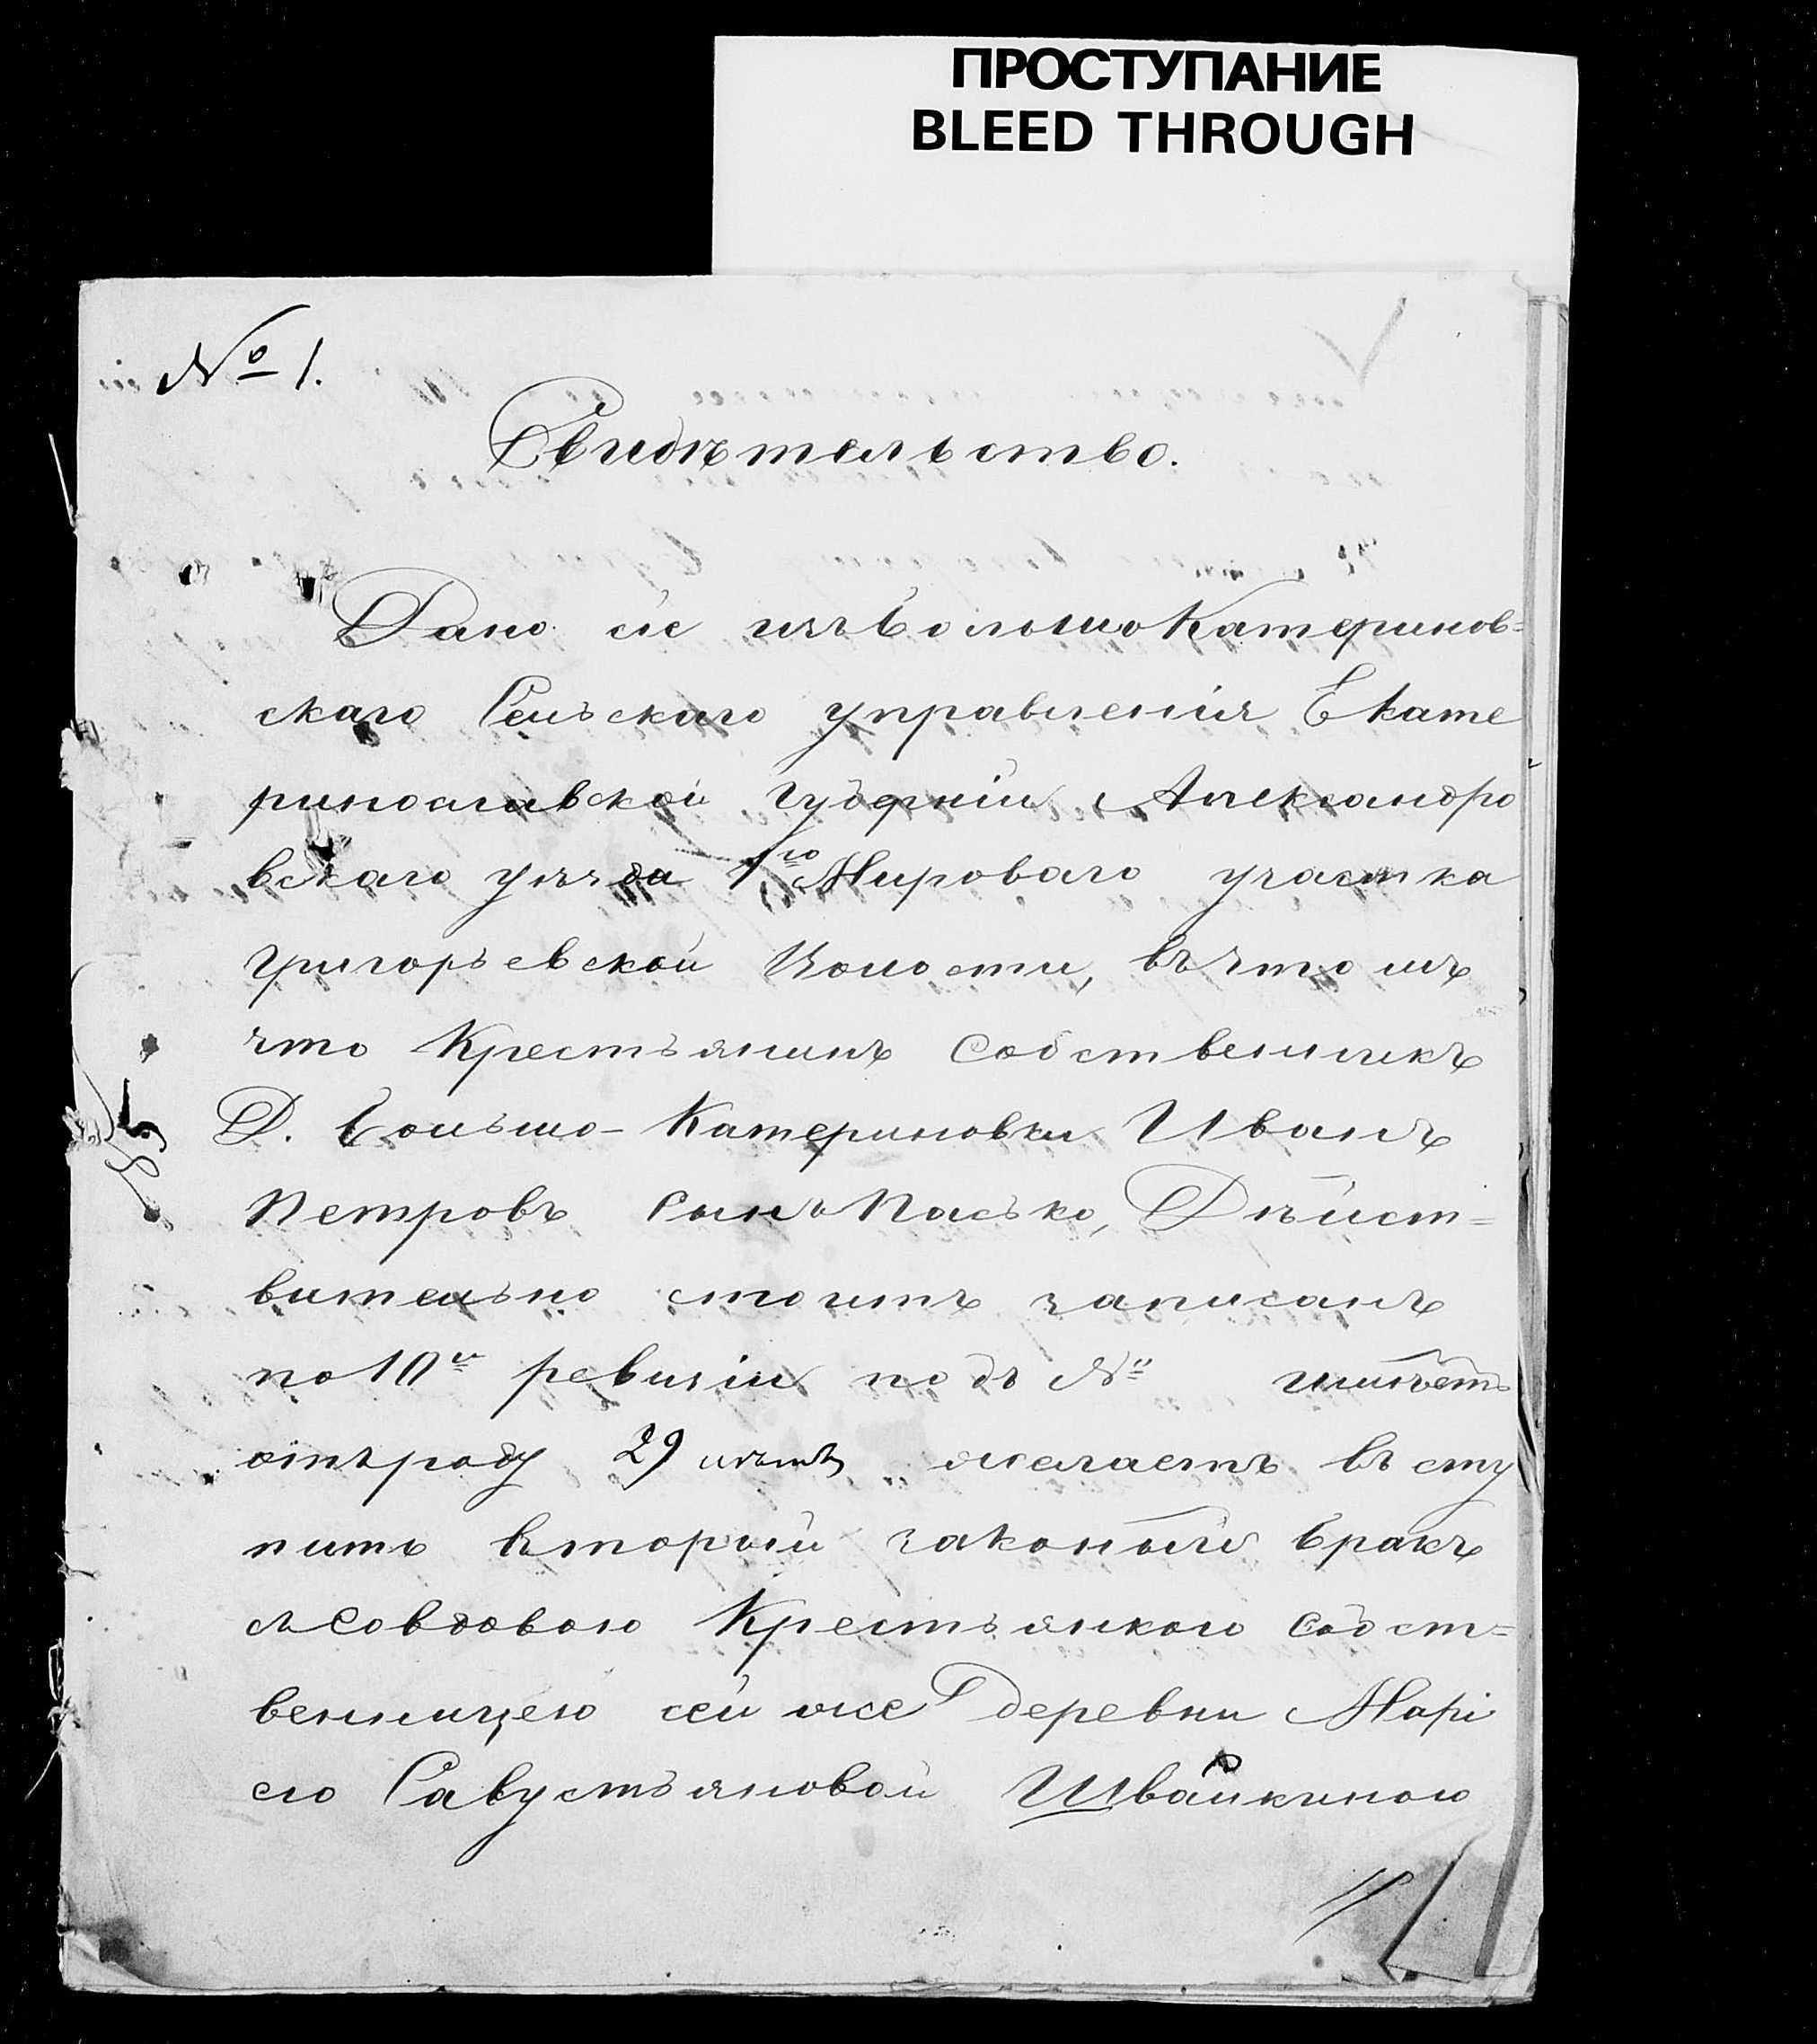 ПРОСТУПАНИЕ
BLEED THROUGH
№ 1.
Свидѣтельство.
Дано сіе изъ БольшоКатеринов=
скаго Сельскаго управленія Екате
ринославской губерніи Александро
вскаго уѣзда 1го Мироваго участка
Григорьевской Волости, въ томъ
что Крестьянинъ Собственникъ
Д. Большо-Катериновки Иванъ
Петровъ Сынъ Пасько, Дѣйст=
вительно стоитъ записанъ
по 10й ревизіи подъ № имѣетъ
отъ роду 29 лѣтъ желаетъ всту
пить вторый законый бракъ
съ Совдовою Крестьянкою Собст=
венницею сей же деревни Марі
ею Савустьяновой Швайкиною